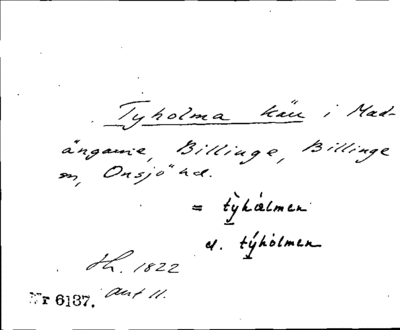 Tyholma kärr i Mad-
ängarne, Billinge, Billinge
sn, Onsjö hd.
= tỳhælmen
el. týhòlmen
Hh. 1822
Nr 6137. Ant 11.